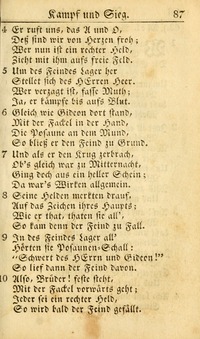 Kampf und Sieg. 87
4 Er ruft uns, das A und O,
Deß sind wir von Herzen froh;
Wer nun ist ein rechter Held,
Zieht mit ihm aufs freie Feld.
5 Um des Feindes Lager her
Stellet sich des HErren Heer.
Wer verzagt ist, fasse Muth;
Ja, er kämpfe bis aufs Blut.
6 Gleich wie Gideon dort stand,
Mit der Fackel in der Hand,
Die Posaune an dem Mund,
So bließ er den Feind zu Grund.
7 Und als er den Krug zerbrach,
Ob's gleich war zu Mitternacht,
Ging doch aus ein heller Schein;
Da war's Wirken allgemein.
8 Seine Helden merkten drauf,
Auf das Zeichen ihres Haupts;
Wie er that, thaten sie all',
So kam denn der Feind zu Fall.
9 In des Feindes Lager all'
Hörten sie Posaunen-Schall:
"Schwert des HErrn und Gideon!"
So lief dann der Feind davon.
10 Also, Brüder! feste steht,
Mit der Fackel vorwärts geht;
Jeder sei ein rechter Held,
So wird bald der Feind gefällt.